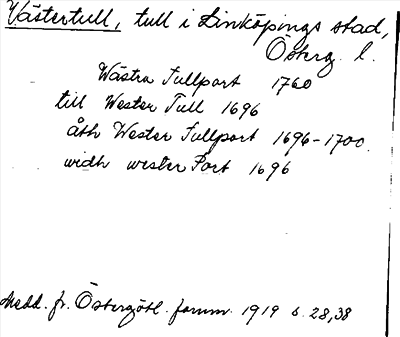 Västertull, tull i Linköpings stad,
Österg. l.
Wästra Tullport 1760
till Wester Tull 1696
åth Wester Tullport 1696-1700.
widh wester Port 1696
Medd. fr. Östergötl. fornm. 1919 s. 28,38